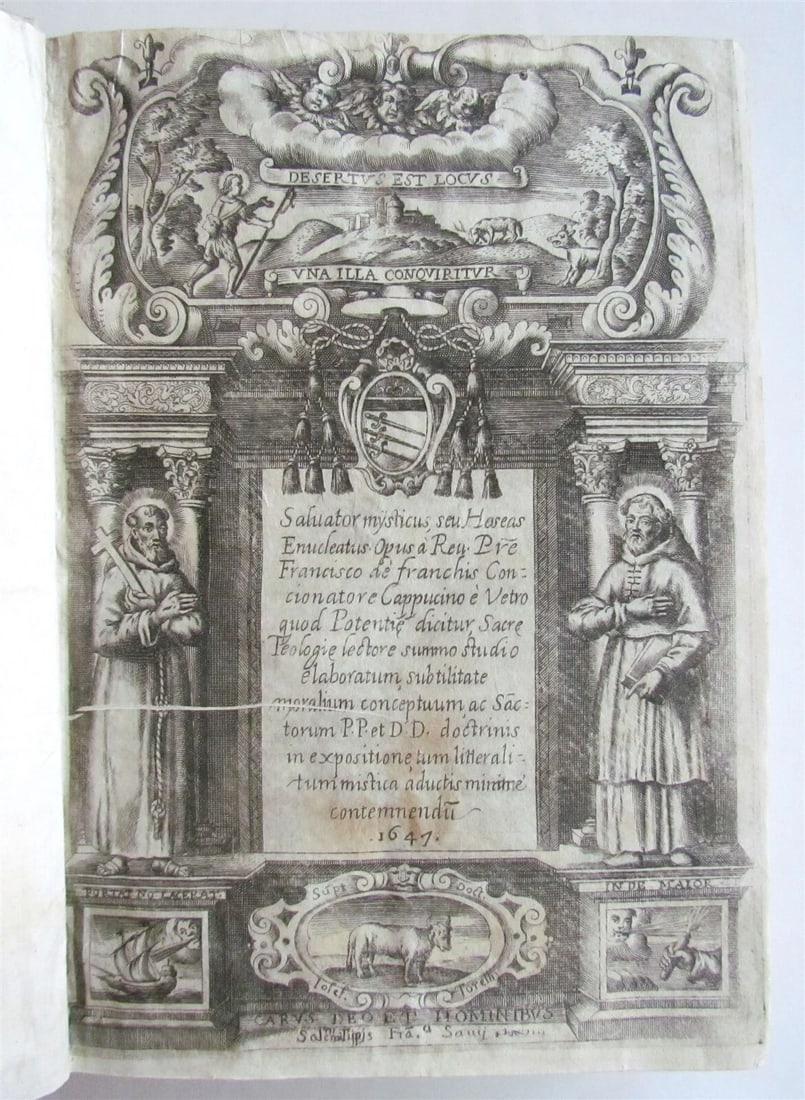 DESERTVS EST LOCVS
VNA ILLA CONQVIRITVR
Saluator mysticus, seu Hoseas
Enucleatus Opus à Reu. Prē
Francisco de franchis Con:
cionatore Cappucino è Vetro
quod Potentię dicitur Sacrę
Teologię lectore summo studio
elaboratum, subtilitate
moralium conceptuum, ac Sāc:
torum P.P. et D.D. doctrinis
in expositione tum litterali-
tum mistica aductis minimè
contemnendū
.1647.
PORTAT NO LACERAT
INDE MAIOR
Supt Doct
Iosef. Torelli
CARVS DEO ET HOMINIBVS
Fra.